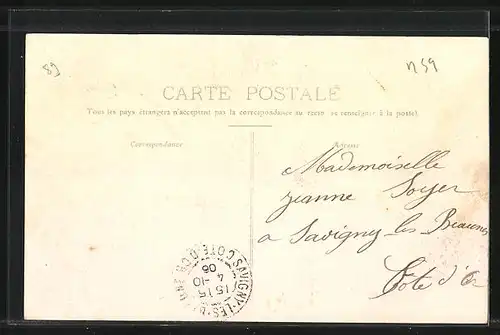 89
n59
CARTE POSTALE
Tous les pays étrangers n'acceptent pas la correspondance au recto se renseigner à la poste.
Correspondance
Adresse
Mademoiselle
Jeanne Soyer
a Savigny les Beaune
Côte d'Or
SAVIGNY-LES-B
COTE D'OR
15 15
4 -10
06